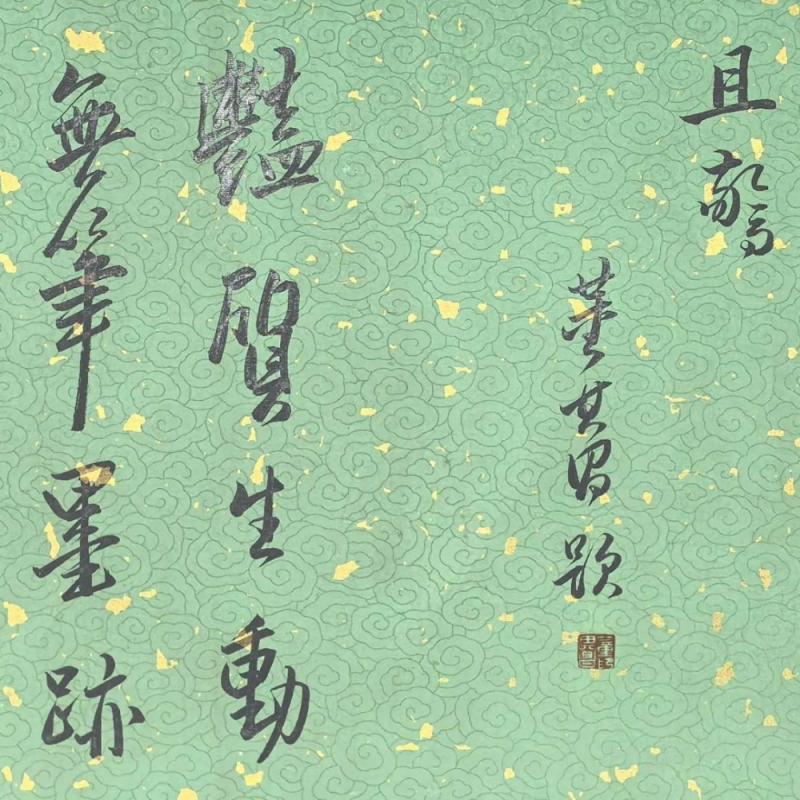 且驚
董其昌題
豔質生動
無筆墨跡